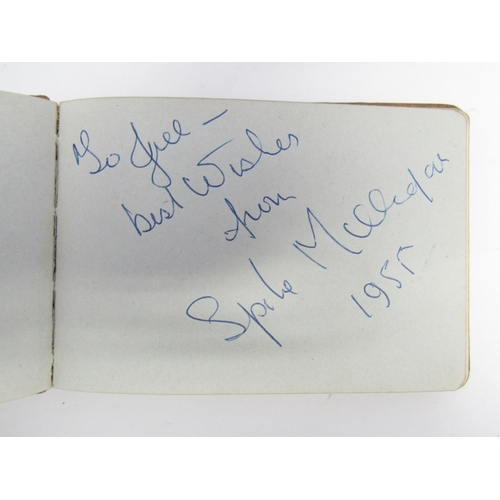 To
best Wishes
from
Spike Milligan
1955